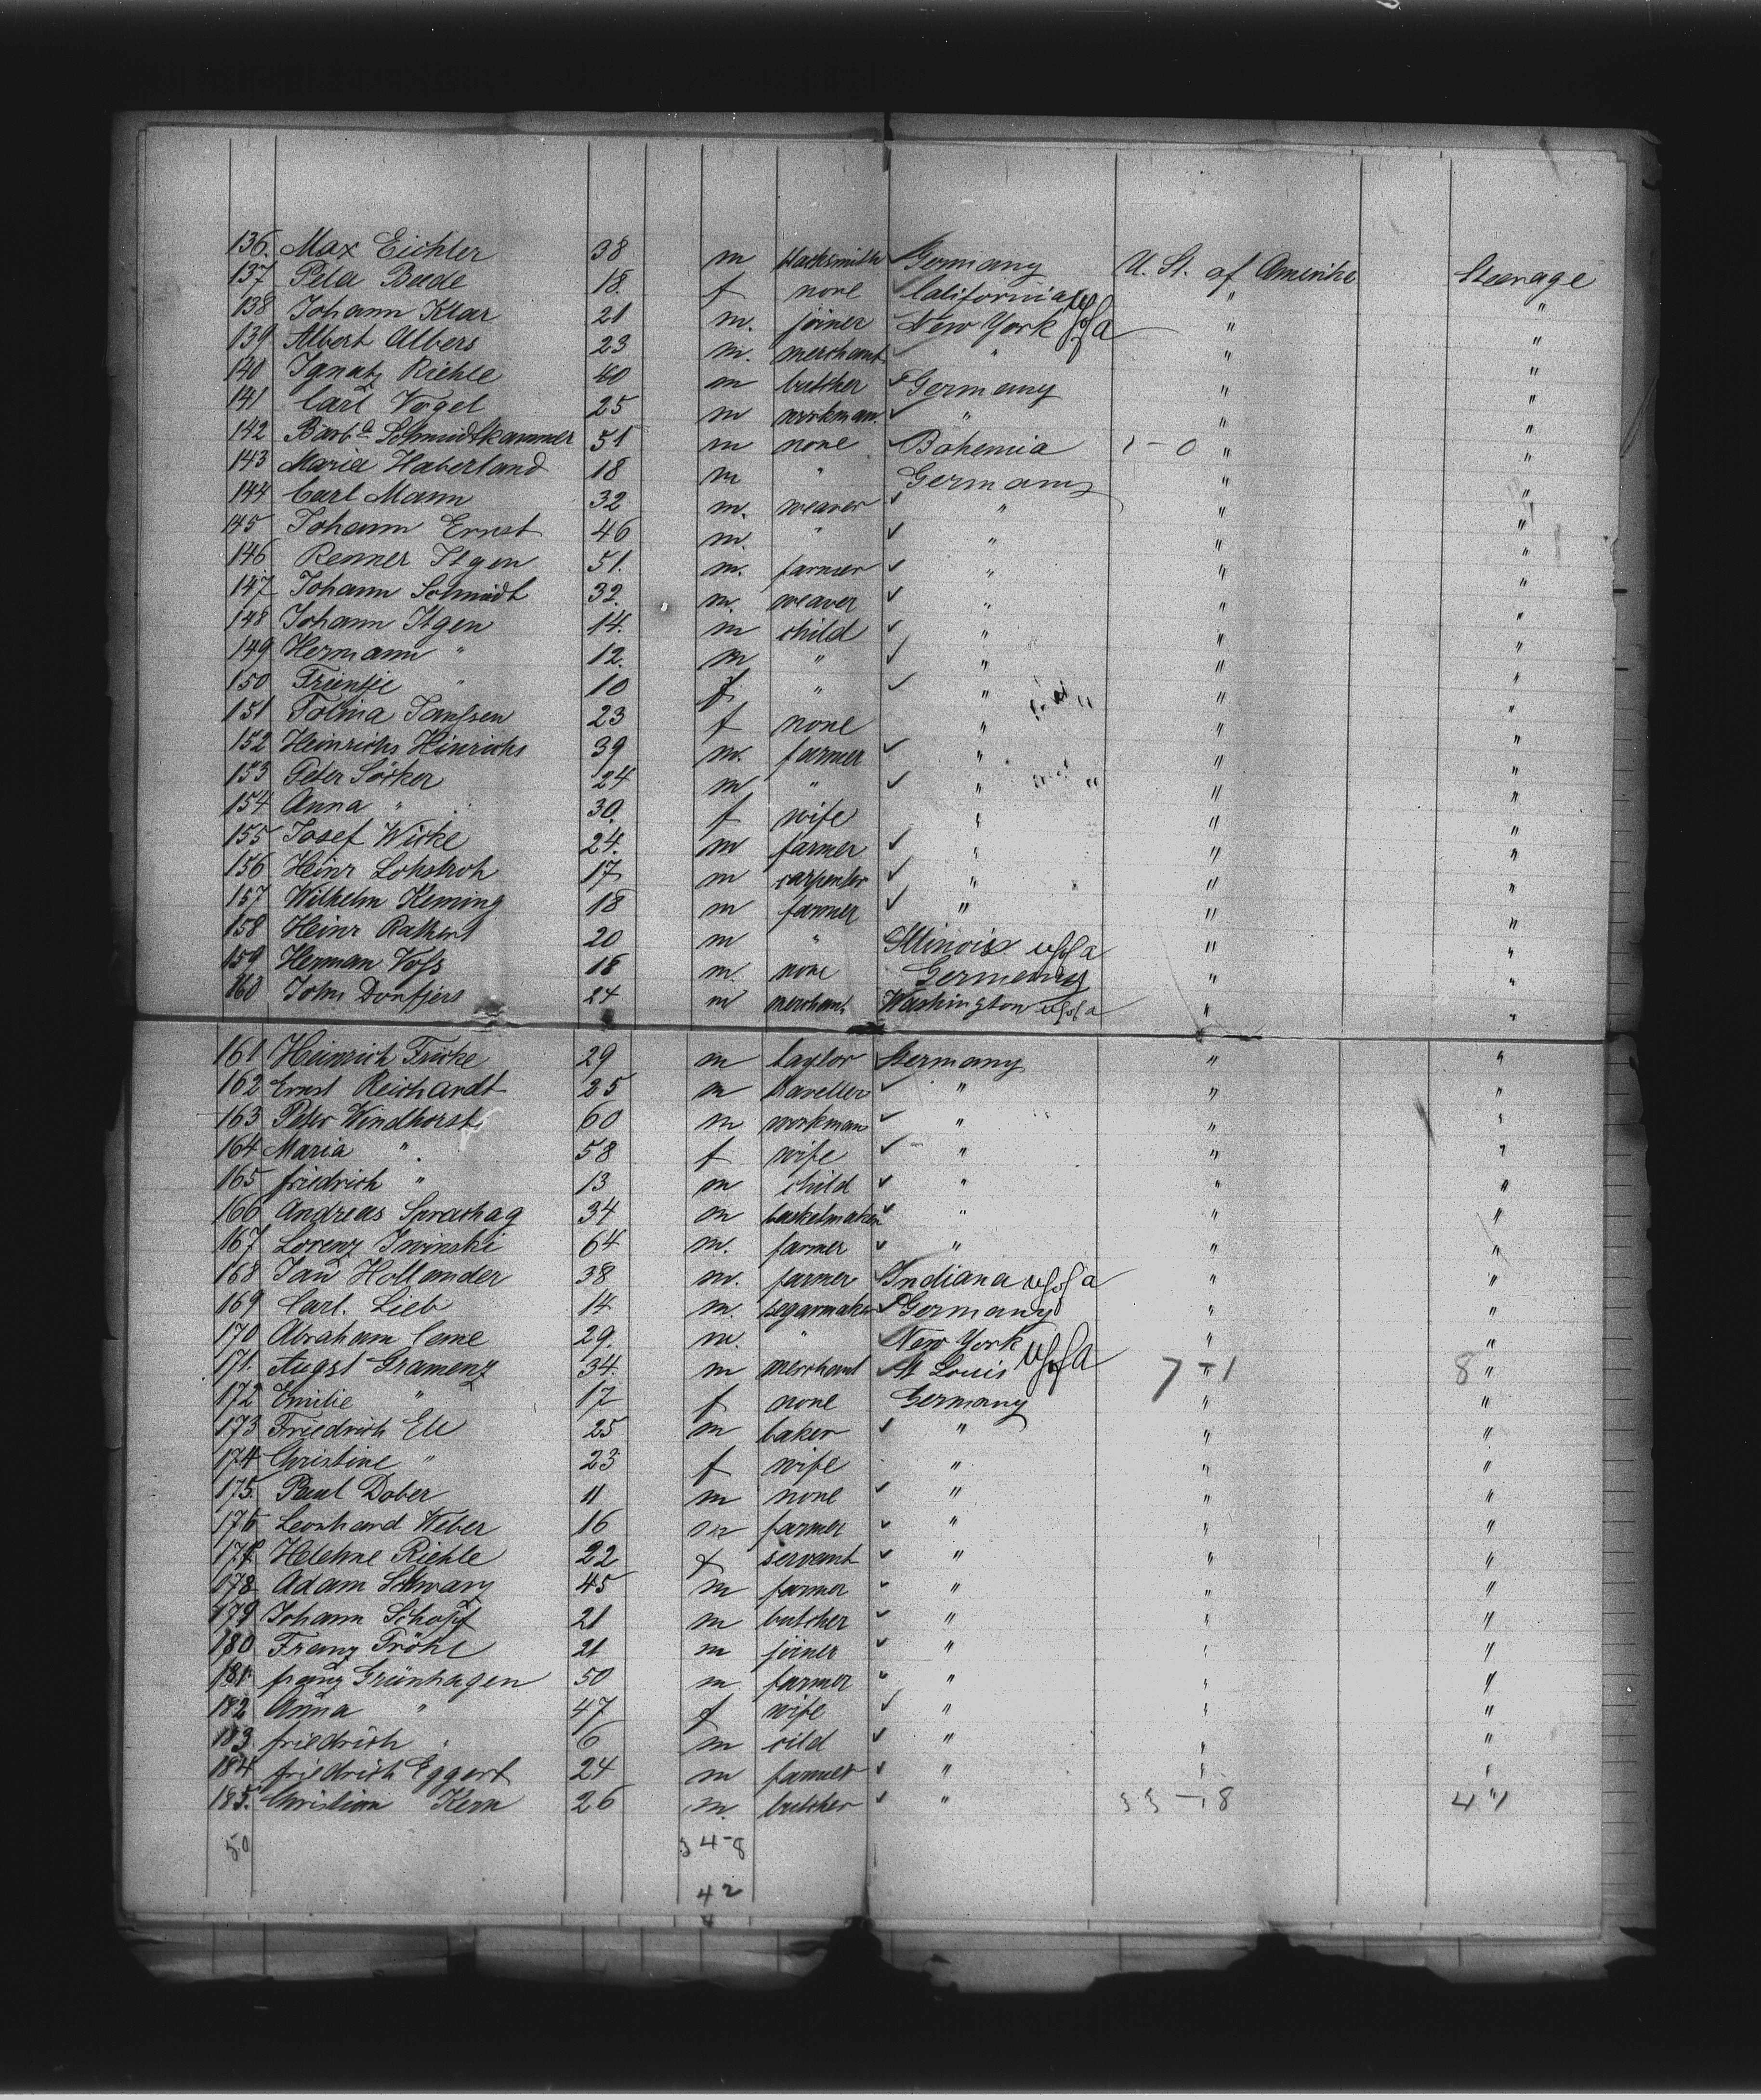 136. Max Eichler 38 m blacksmith Germany U. St. of Amerika Steerage
137 Peta Beede 18. f none California " "
138 Johann Klar 21 m. joiner New York USofA " "
139 Albert Albers 23 m. merchant " " "
140 Ignatz Riehle 40 m butcher Germany " "
141 Carl Vogel 25 m workman " " "
142 Barb.a Schmidtkammer 51 m none Bohemia 1-0 " "
143 Maria Haberland 18 m " Germany " "
144 Carl Mann 32 m. weaver " " "
145 Johann Ernst 46 m. " " " "
146 Renner Itgen 51. m. farmer " " "
147 Johann Schmidt 32. m. weaver " " "
148 Johann Itgen 14. m child " " "
149 Hermann " 12. m " " " "
150 Trientje " 10 f " " " "
151 Tolina Janssen 23 f none " " "
152 Heinrichs Hinrichs 39 m. farmer " " "
153 Peter Sörker 24 m " " " "
154 Anna " 30. f wife " " "
155 Josef Wicke 24. m farmer " " "
156 Heinr Lohstroh 17 m carpenter " " "
157 Wilhelm Keming 18 m farmer " " "
158 Heinr Rathert 20 m " Illinois USofA " "
159 Herman Voss 18 m. none Germany " "
160 John Donfjers 24 m merchant Washington USofA " "
161 Heinrich Fricke 29 m taylor Germany " "
162 Ernst Reichardt 25 m traveller " " "
163 Peter Windhorst 60 m workman " " "
164 Maria " 58 f wife " " "
165 friedrich " 13 m child " " "
166 Andreas Sprachag 34 m basketmaker " " "
167 Lorenz Iwinski 64 m. farmer " " "
168 Jan Hollander 38 m. farmer Indiana USofA " "
169 Carl. Lieb 14 m. segarmaker Germany " "
170 Abraham Came 29. m. " New York " "
171. Augst Gramenz 34. m merchant St Louis USofA 7-1 " 8 "
172 Emilie " 17 f none Germany " "
173 Friedrich Ele 25 m baker " " "
174 Christine " 23 f wife " " "
175. Paul Dober 11 m none " " "
176 Leonhard Weber 16 m farmer " " "
177 Helehne Riehle 22 f servant " " "
178 Adam Schwarz 45 m farmer " " "
179 Johann Schopf 21 m butcher " " "
180 Franz Fröhl 21 m joiner " " "
181. franz Grünhagen 50 m farmer " " "
182 Anna " 47 f wife " " "
183. friedrich " 6 m cild " " "
184 friedrich Eggert 24 m farmer " " "
185. Christian Kern 26 m. butcher " 33-8 4 "
50 34-8
42